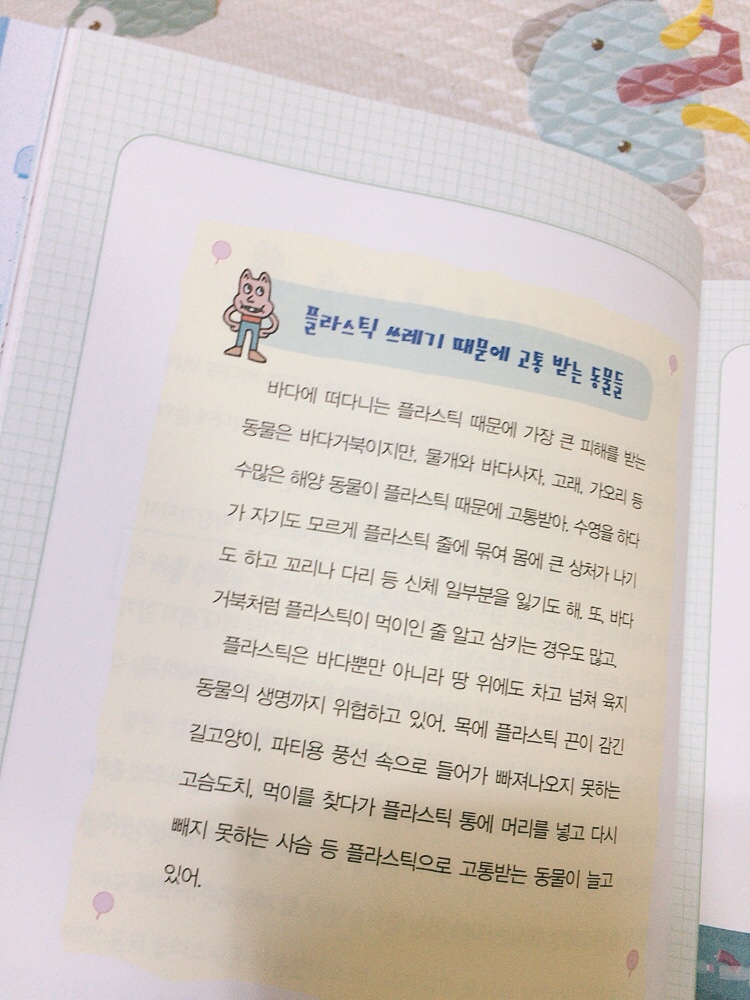 플라스틱 쓰레기 때문에 고통 받는 동물들
바다에 떠다니는 플라스틱 때문에 가장 큰 피해를 받는
동물은 바다거북이지만, 물개와 바다사자, 고래, 가오리 등
수많은 해양 동물이 플라스틱 때문에 고통받아. 수영을 하다
가 자기도 모르게 플라스틱 줄에 묶여 몸에 큰 상처가 나기
도 하고 꼬리나 다리 등 신체 일부분을 잃기도 해. 또, 바다
거북처럼 플라스틱이 먹이인 줄 알고 삼키는 경우도 많고.
플라스틱은 바다뿐만 아니라 땅 위에도 차고 넘쳐 육지
동물의 생명까지 위협하고 있어. 목에 플라스틱 끈이 감긴
길고양이, 파티용 풍선 속으로 들어가 빠져나오지 못하는
고슴도치, 먹이를 찾다가 플라스틱 통에 머리를 넣고 다시
빼지 못하는 사슴 등 플라스틱으로 고통받는 동물이 늘고
있어.